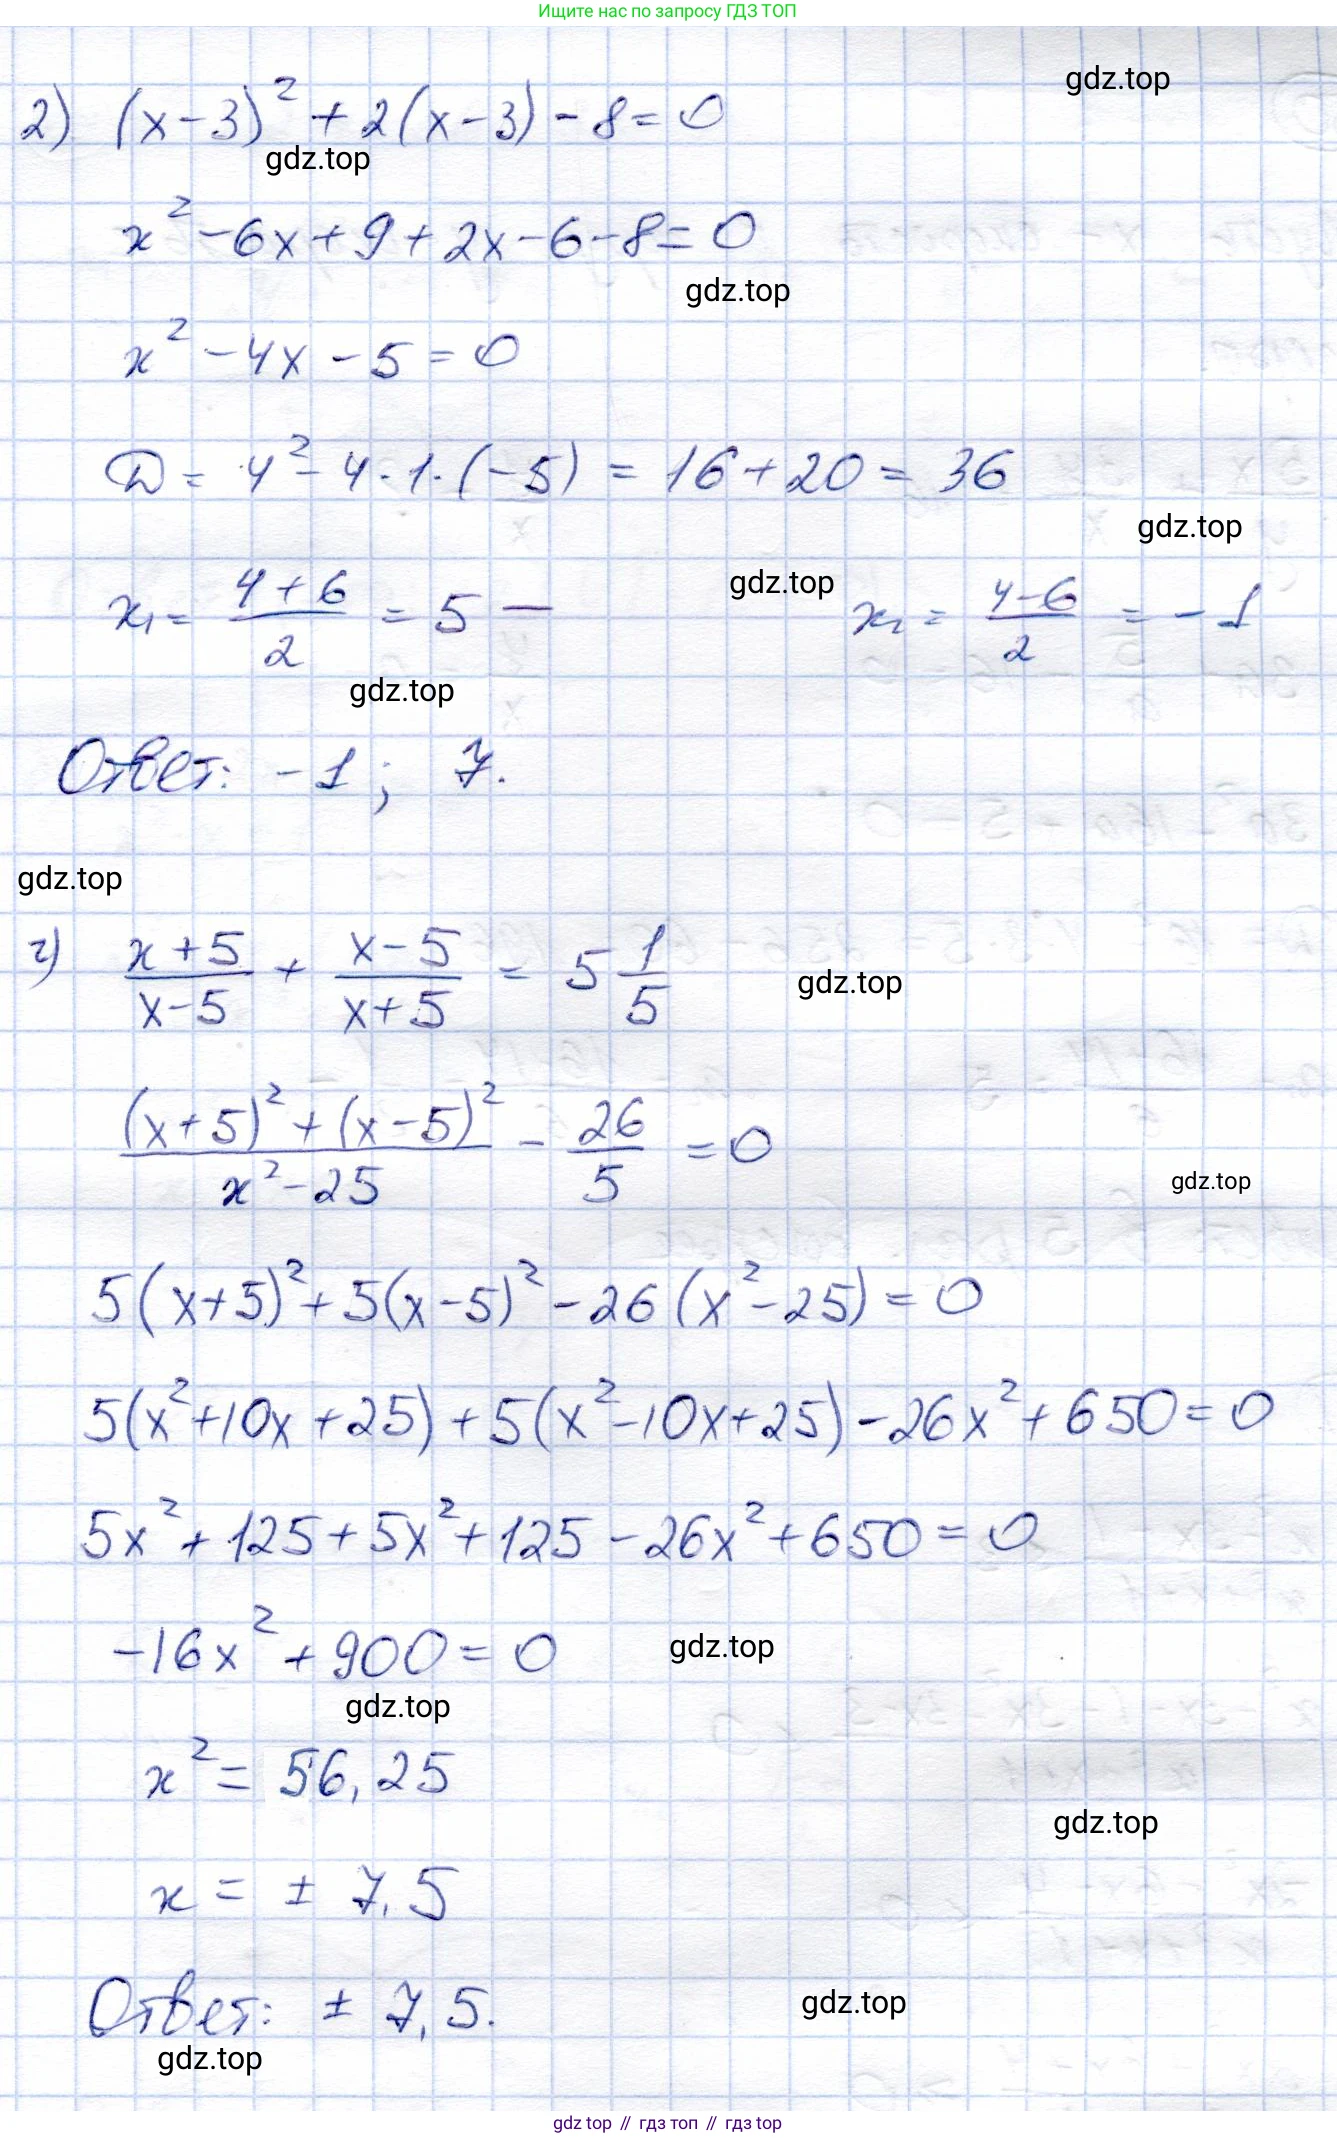 Ищите нас по запросу ГДЗ ТОП
gdz.top
2) (x-3)² + 2(x-3) - 8 = 0
gdz.top
x² - 6x + 9 + 2x - 6 - 8 = 0
gdz.top
x² - 4x - 5 = 0
D = 4² - 4·1·(-5) = 16 + 20 = 36
gdz.top
x₁ = (4+6)/2 = 5 — gdz.top x₂ = (4-6)/2 = -1
gdz.top
Ответ: -1; 7.
gdz.top
г) (x+5)/(x-5) + (x-5)/(x+5) = 5 1/5
gdz.top
((x+5)² + (x-5)²)/(x²-25) - 26/5 = 0
gdz.top
5(x+5)² + 5(x-5)² - 26(x²-25) = 0
5(x²+10x+25) + 5(x²-10x+25) - 26x² + 650 = 0
5x² + 125 + 5x² + 125 - 26x² + 650 = 0
-16x² + 900 = 0
gdz.top
gdz.top
x² = 56,25
gdz.top
x = ± 7,5
Ответ: ± 7,5.
gdz.top
gdz.top
gdz top // гдз топ // гдз top